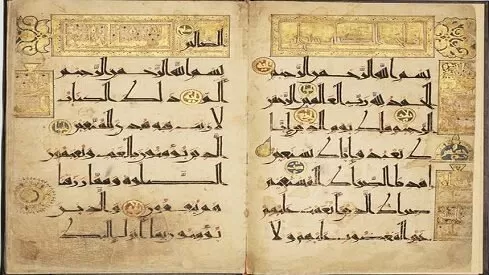 بسم الله الرحمن الرحيم
الحمد لله رب العالمين الرحمن
الرحيم ملك يوم الدين ايا
ك نعبد واياك نستعين
اهدنا الصراط المستقيم
صراط الذين انعمت عليهم
غير المغضوب عليهم ولا
الضالين
بسم الله الرحمن الرحيم
الم ذلك الكتاب
لا ريب فيه هدى للمتقين
الذين يؤمنون بالغيب ويقيمون
الصلوة ومما رزقنا
هم ينفقون والذين
يؤمنون بما انزل اليك